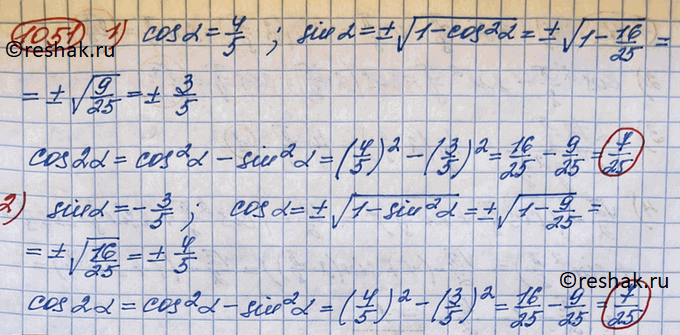 1051 1) cosα = 4/5 ; sinα = ±√(1 - cos²α) = ±√(1 - 16/25) =
= ±√(9/25) = ± 3/5
cos2α = cos²α - sin²α = (4/5)² - (3/5)² = 16/25 - 9/25 = 7/25
2) sinα = - 3/5 ; cosα = ±√(1 - sin²α) = ±√(1 - 9/25) =
= ±√(16/25) = ± 4/5
cos2α = cos²α - sin²α = (4/5)² - (3/5)² = 16/25 - 9/25 = 7/25
reshak.ru